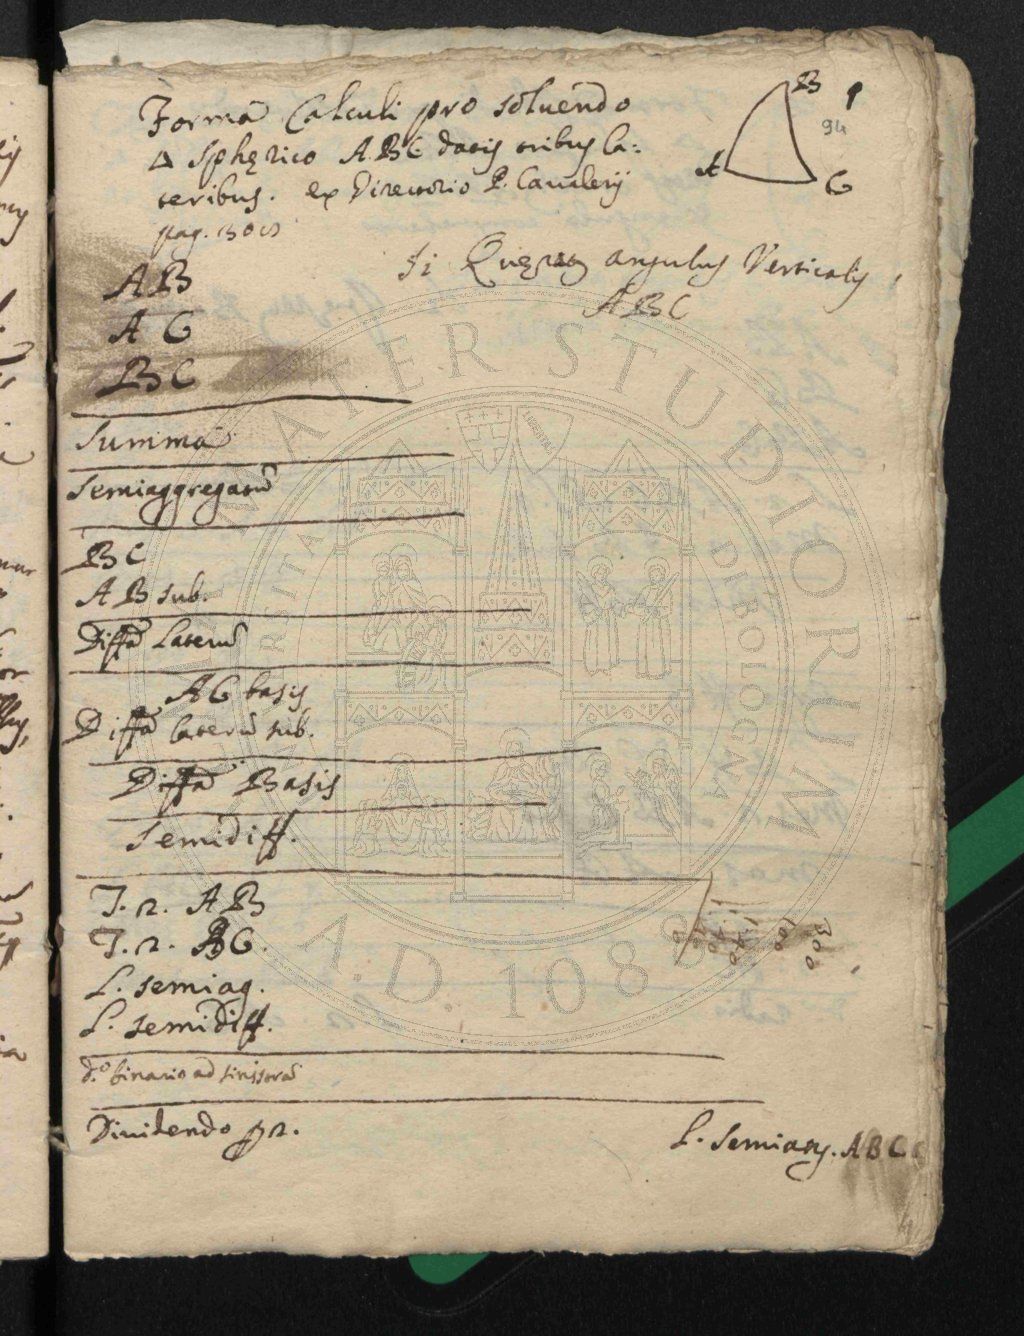 Forma Calculi pro soluendo
Δ Sphęrico ABC datis tribus la:
teribus. ex Directorio P. Caualerij
pag.
B
A
C
94
Si Quęratur angulus Verticalis
ABC
AB
AC
BC
Summa
Semiaggregatū
BC
AB sub.
Diffã Laterū
AC basis
Diffã laterū sub.
Diffã Basis
Semidiff.
T. 2. AB
T. 2. BC.
L. semiag.
L. semidiff.
300
100
d.º binario ad sinistrã
Diuidendo p 2.
L. Semiang. ABC
ALMA MATER STUDIORUM
A.D. 1088
UNIVERSITÀ DI BOLOGNA
LIBERTAS